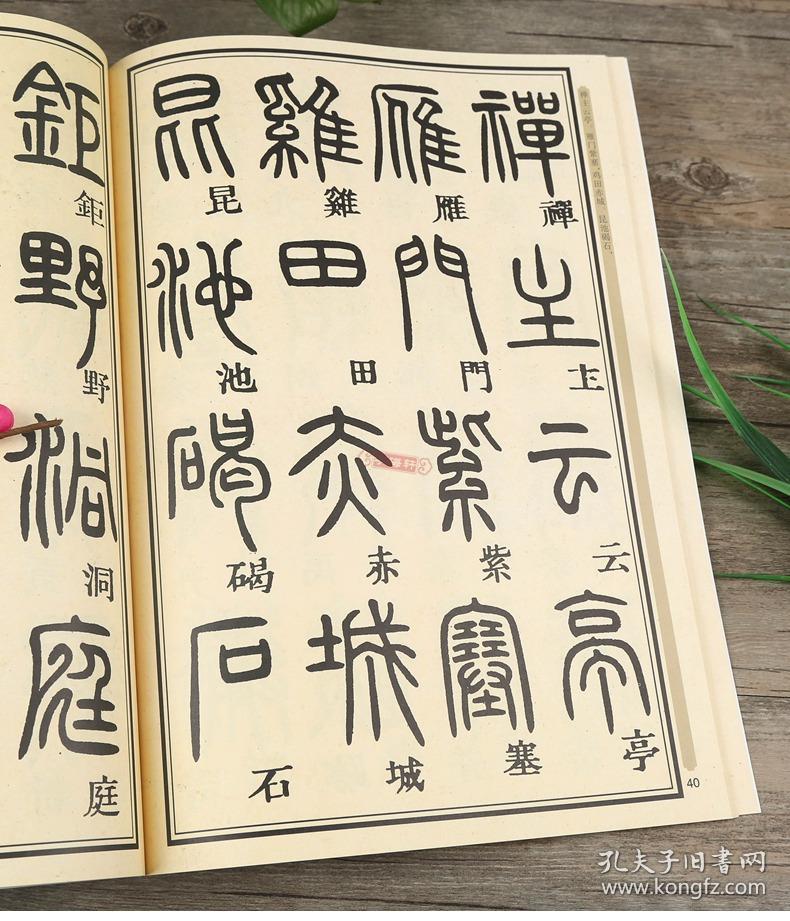 禅主云亭，雁门紫塞，鸡田赤城，昆池碣石，
禪主云亭
禪主云亭
雁門紫塞
雁門紫塞
雞田赤城
雞田赤城
昆池碣石
昆池碣石
鉅野洞庭
鉅野洞庭
40
海轩
孔夫子旧书网
www.kongfz.com